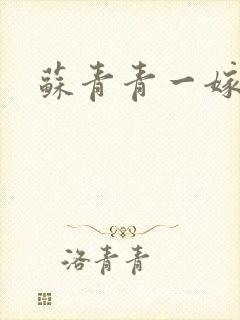 蘇青青一嫁
洛青青